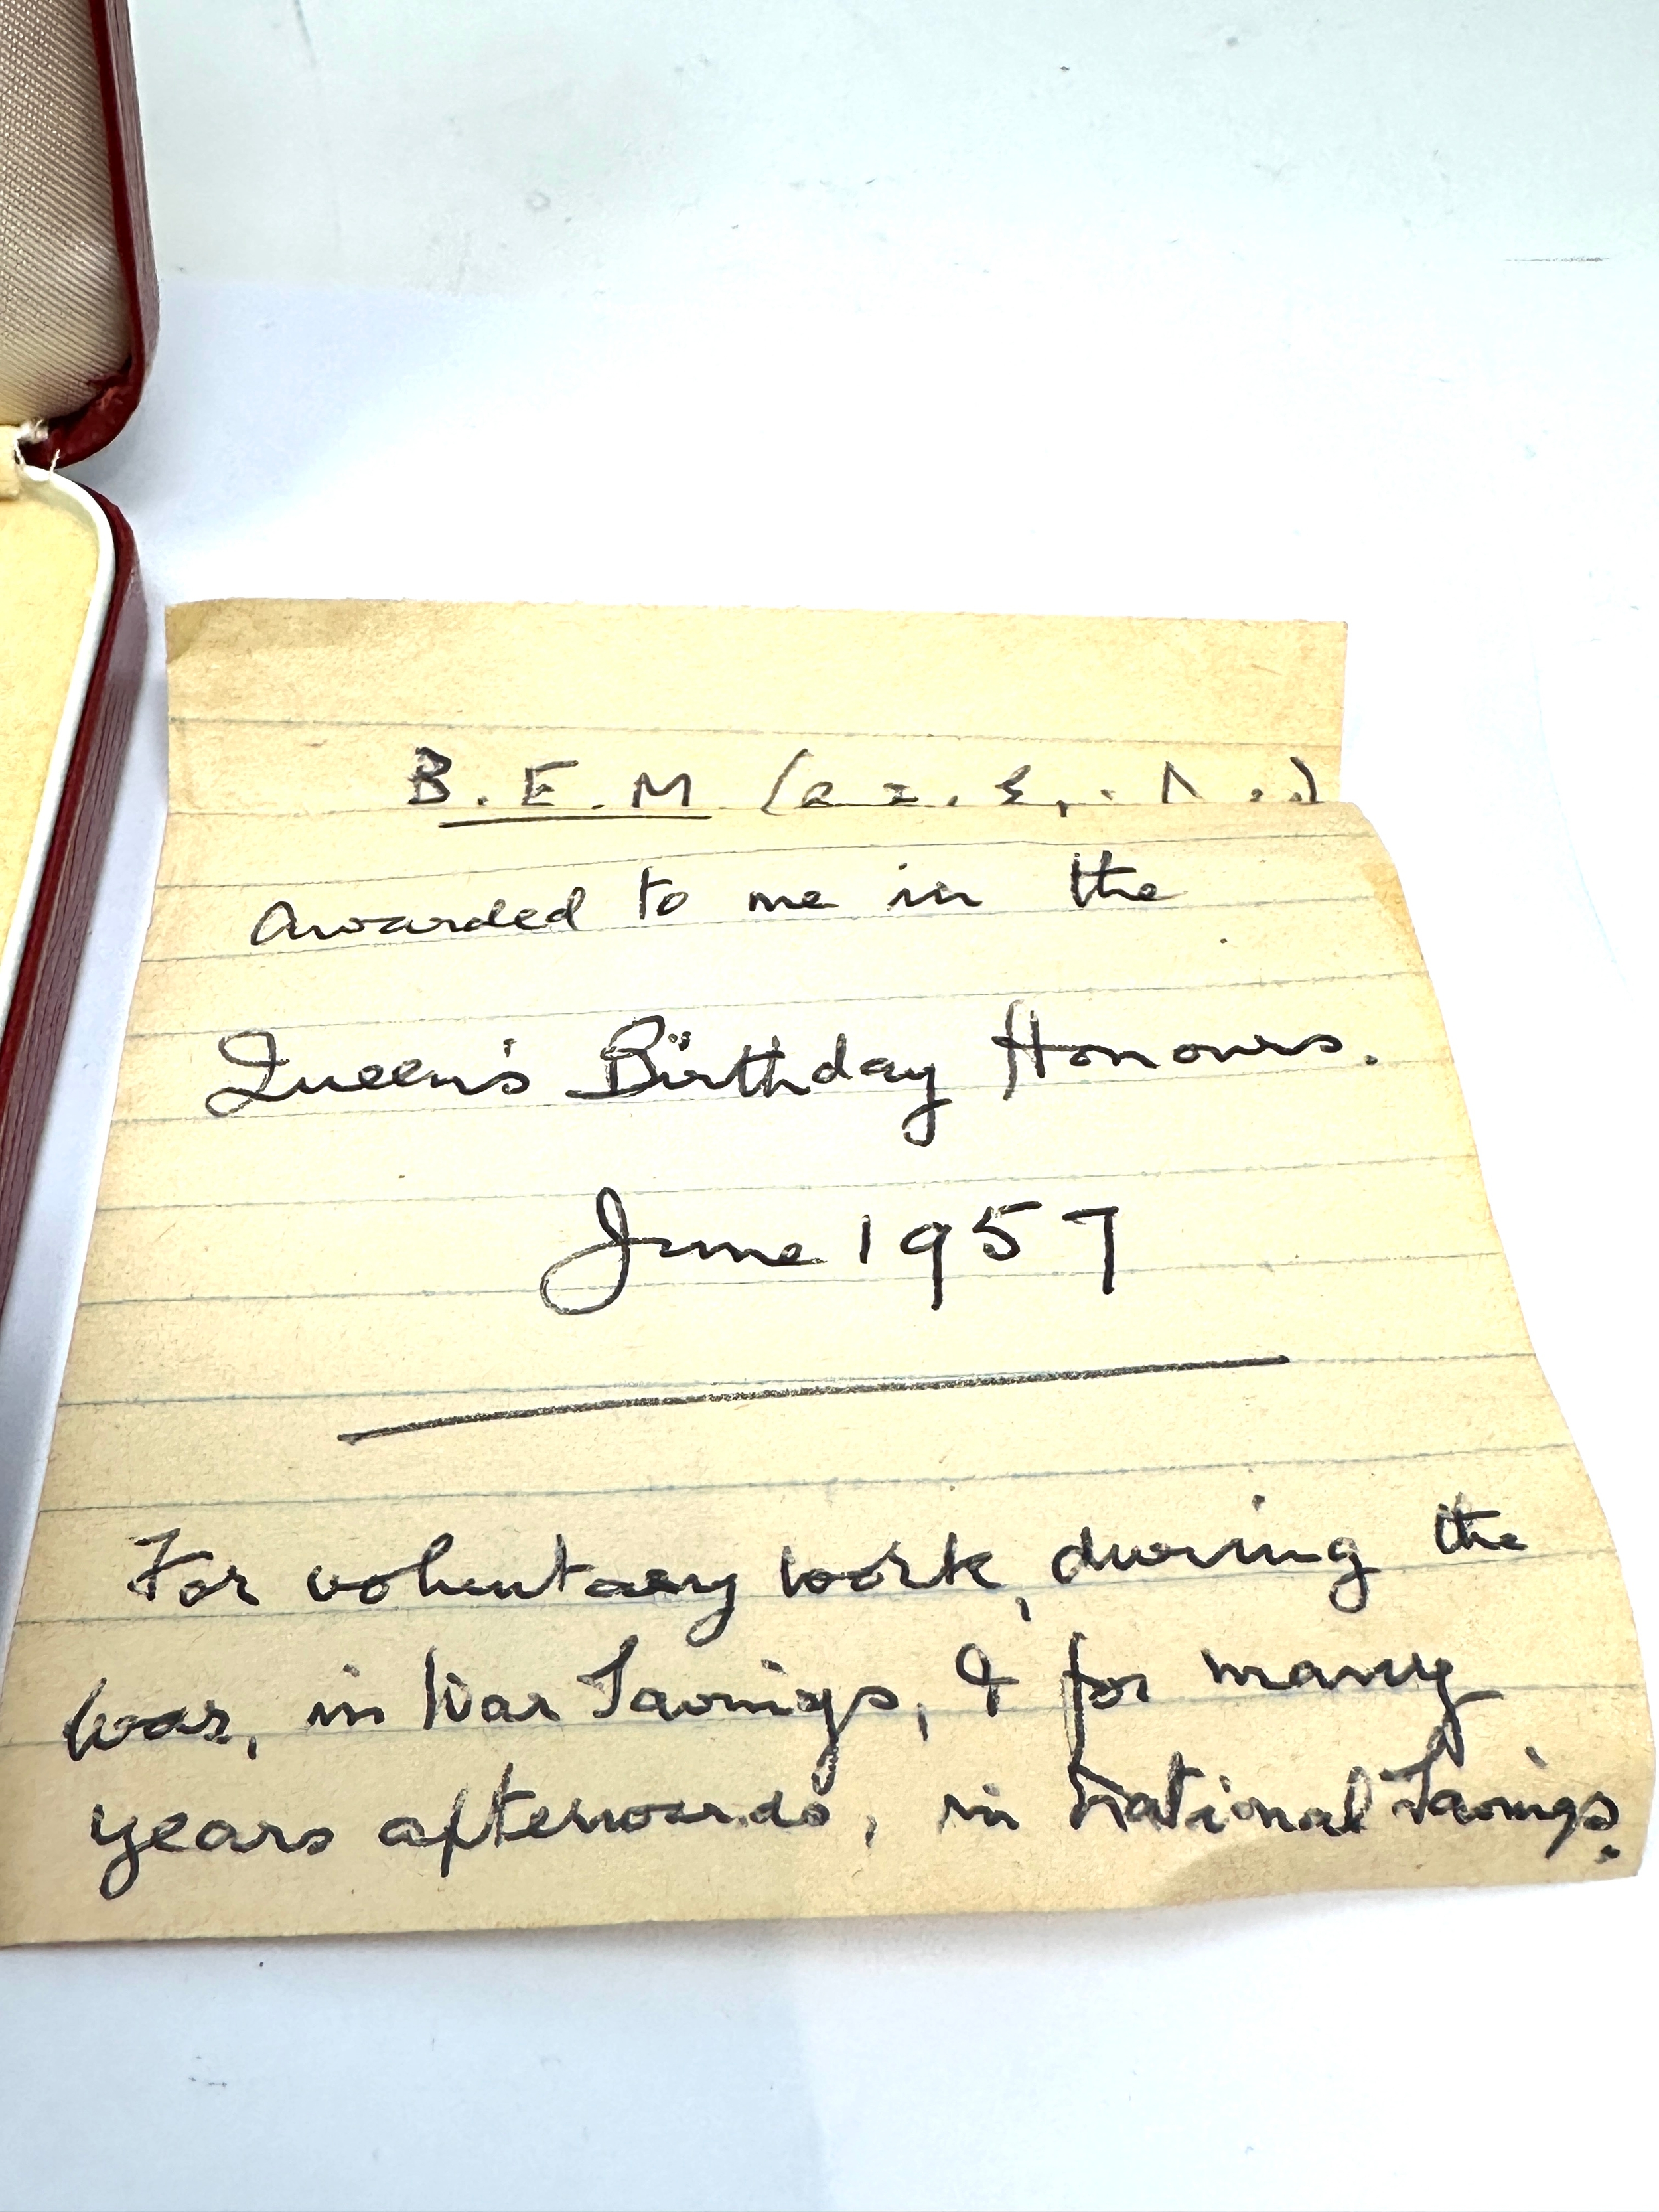 B.E.M
awarded to me in the
Queen's Birthday Honours.
June 1957
For voluntary work, during the
war, in War Savings, & for many
years afterwards, in National Savings.